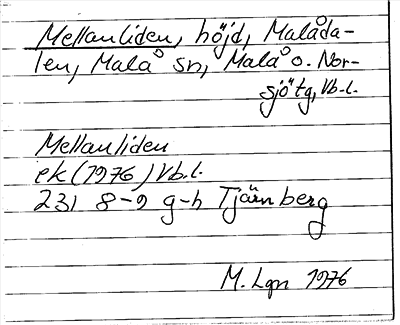 Mellanliden, höjd, Malåda-
len, Malå sn, Malå o. Nor-
sjö tg, Vb.l.
Mellanliden
ek (1976) Vb.l.
23I 8-9 g-h Tjärnberg
M. Lgn 1976